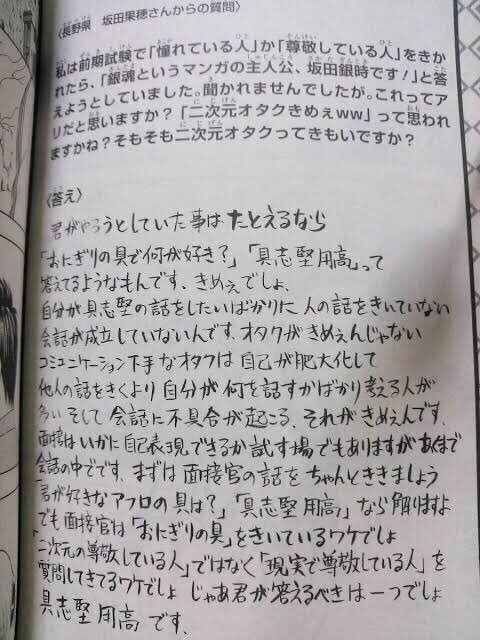 〈長野県　坂田果穂さんからの質問〉
私は前期試験で「憧れている人」か「尊敬している人」をきか
れたら、「銀魂というマンガの主人公、坂田銀時です！」と答
えようとしていました。聞かれませんでしたが。これってア
リだと思いますか？「二次元オタクきめぇww」って思われ
ますかね？そもそも二次元オタクってきもいですか？
〈答え〉
君がやろうとしていた事はたとえるなら
「おにぎりの具で何が好き？」「具志堅用高」って
答えてるようなもんです、きめぇでしょ、
自分が具志堅の話をしたいばかりに人の話をきいていない
会話が成立していないんです、オタクがきめぇんじゃない
コミュニケーション下手なオタクは自己が肥大化して
他人の話をきくより自分が何を話すかばかり考える人が
多い そして会話に不具合が起こる、それがきめぇんです、
面接はいかに自己表現できるか試す場でもありますがあくまで
会話の中でです、まずは面接官の話をちゃんとききましょう
「君が好きなアフロの具は？」「具志堅用高」なら解りますよ
でも面接官は「おにぎりの具」をきいているワケでしょ
「二次元の尊敬している人」ではなく「現実で尊敬している人」を
質問してきてるワケでしょ じゃあ君が答えるべきは一つでしょ
具志堅用高です、